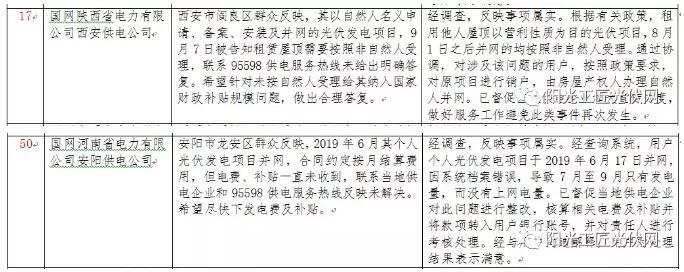 17
国网陕西省电力有限公
司西安供电公司
西安市阎良区群众反映，其以自然人名义申
请、备案、安装及并网的光伏发电项目，9
月 7 被告知租赁屋顶需要按照非自然人受
理，联系 95598 供电服务热线未给出明确答
复。希望针对未按自然人受理给其纳入国家
财政补贴规模问题，做出合理答复。
经调查，反映事项属实。根据有关政策，租
用他人屋顶以营利性质为目的光伏项目，8 月
1 日之后并网的均按照非自然人受理。通过协
调，对涉及该问题的用户，按照政策要求，
对原项目进行销户，由房屋产权人办理自然
人并网。已督促
度，
做好服务工作避免此类事件再次发生。
50
国网河南省电力有限公
司安阳供电公司
安阳市龙安区群众反映，2019 年 6 月某个人
光伏发电项目并网，合同约定按月结算费
用，但电费、补贴一直未收到，联系当地供
电企业和 95598 供电服务热线反映未解决。
希望尽快下发电费及补贴。
经调查，反映事项属实。经查询系统，用户
个人光伏发电项目于 2019 年 6 月 17 日并网，
因系统档案错误，导致 7 月至 9 月只有发电
量，而没有上网电量。已督促当地供电企业
对此问题进行整改，核算相关电费及补贴并
将款项转入用户银行账号，并对责任人进行
考核处理。经与
理
结果表示满意。
阳光工匠光伏网
阳光工匠光伏网